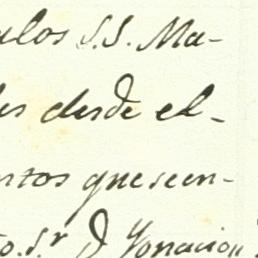 alos S.S. Ma-
les desde el-
ntos que seen-
to. S.r D. Ignacio